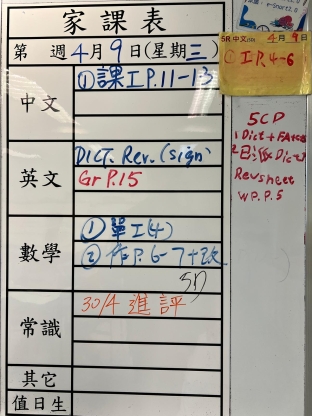 家課表
第 週 4月9日(星期三)
中文
①課工P.11-13
英文
DICT. Rev. (sign)
Gr P.15
數學
①單工(4)
②作P.6-7+改
常識
30/4 進評
其它
值日生
5R 中文 4月9日
①工P.4-6
5CD
1 Dict +
Rev sheet
W.P. P.5